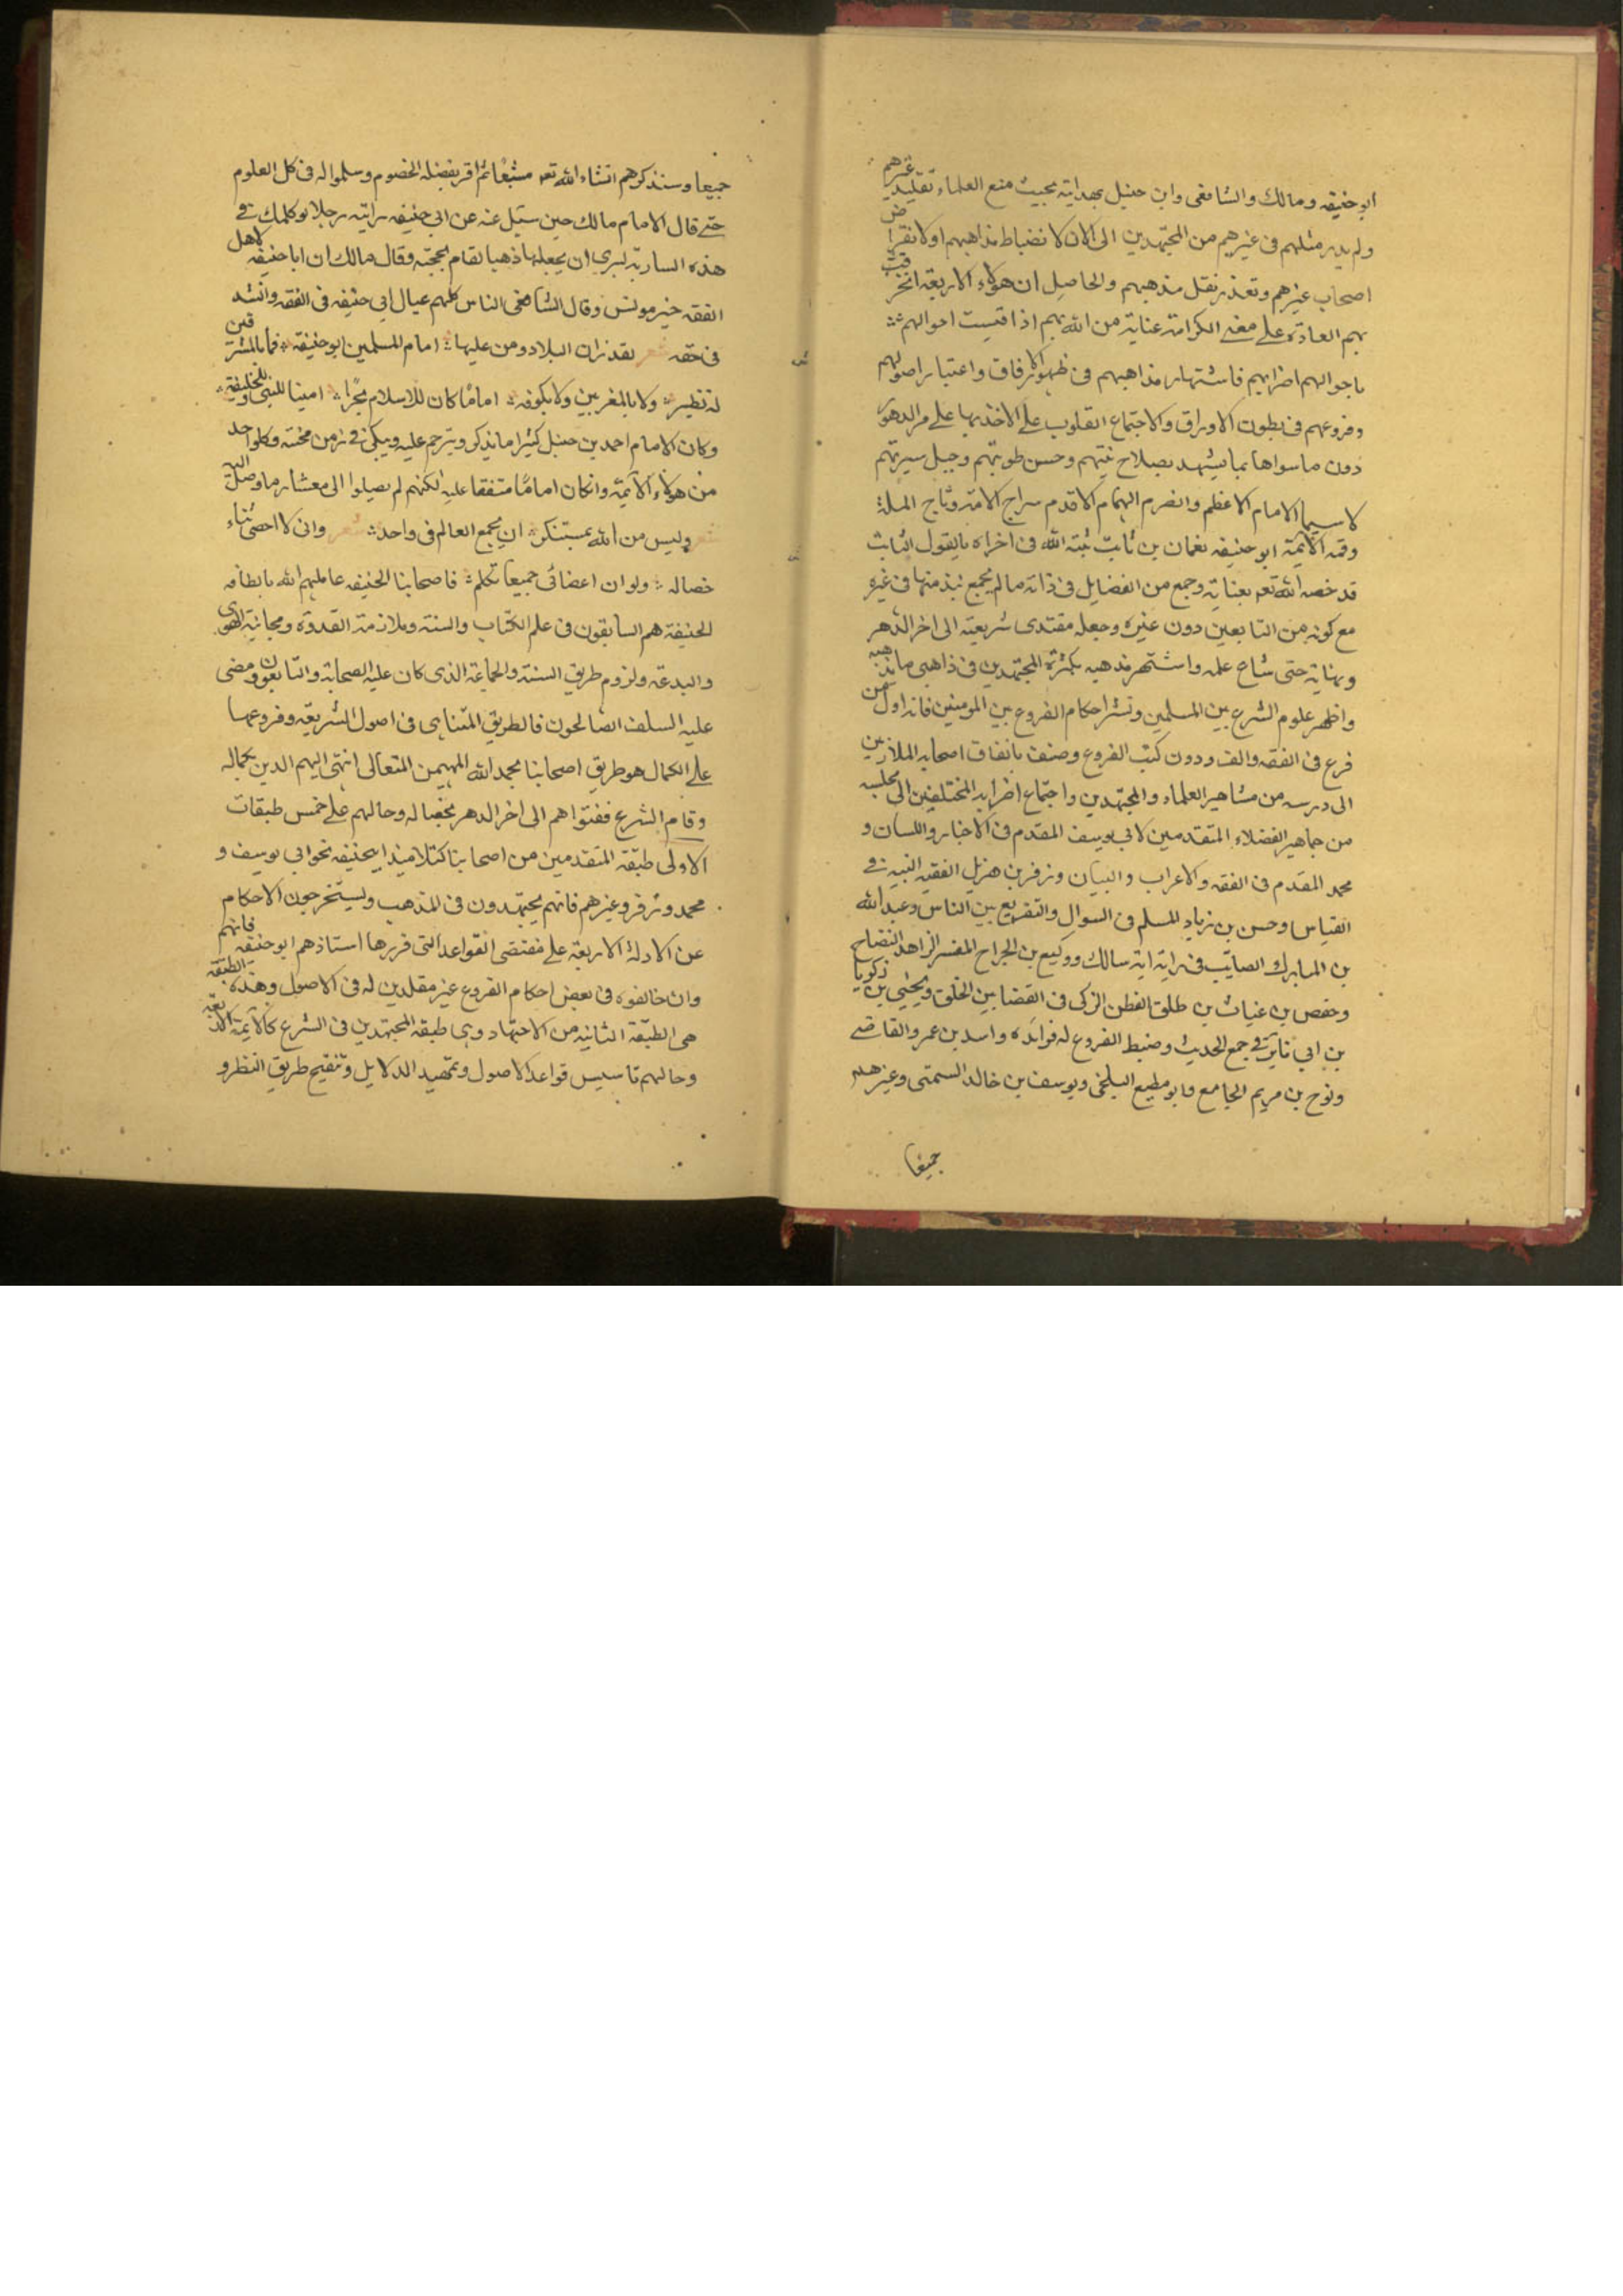 ابو حنيفه ومالك والشافعى وابن حنبل بهداية بحيث منع العلماء تقليد غيرهم
ولم يدر مثلهم فى غيرهم من المجتهدين الى الآن لانضباط مذاهبهم اولانقراض
اصحاب غيرهم وتعذر نقل مذهبهم والحاصل ان هؤلاء الاربعة انخرقت
بهم العادة على معنى الكرامة عناية من الله بهم اذا قيست احوالهم
باحوالهم اضرابهم فاشتهار مذاهبهم فى ظهور الافاق واعتبار اصولهم
وفروعهم فى بطون الاوراق والاجتماع القلوب على الاخذ بها على مر الدهور
دون ماسواها بما يشهد بصلاح نيتهم وحسن طويتهم وجبل سيرتهم
لاسيما الامام الاعظم والضرم الهمام الاقدم سراج الامة وتاج الملة
وقمر الائمة ابو حنيفه نعمان بن ثابت ثبته الله فى اخراه بالقول الثابت
قد خصه الله تعه بعنايته وجمع من الفضايل فى ذاته مالم يجمع نبذ منها فى غيره
مع كونه من التابعين دون غيره وجعله مقتدى شريعته الى اخر الدهر
ونهاية حتى شاع علمه واشتهر مذهبه بكثرة المجتهدين فى ذاهبى مذهبه
واظهر علوم الشرع بين المسلمين ونشر احكام الفروع بين المومنين فانه اول من
فرع فى الفقه والف ودون كتب الفروع وصنف باتفاق اصحابه الملازمين
الى درسه من مشاهير العلماء والمجتهدين واجتماع اضرابه المختلفين الى مجلسه
من جماهير الفضلاء المتقدمين كابى يوسف المقدم فى الاخبار واللسان و
محمد المقدم فى الفقه والاعراب والبيان وزفر بن هزيل الفقيه النبيه فى
القياس وحسن بن زياد المسلم فى السوال والتفريع بين الناس وعبد الله
بن المبارك الصايب فى رايه ابه سالك ووكيع بن الجراح المفسر الزاهد النضاح
وحفص بن غياث بن طلق الفطن الزكى فى القضا بين الخلق ويحيى بن زكريا
بن ابى زايرة فى جمع الحديث وضبط الفروع له فوائده واسد بن عمر والقاضى
ونوح بن مريم الجامع وابو مطيع البلخى ويوسف بن خالد السمتى وغيرهم
جميعا
جميعا وسنذكرهم انشاء الله تعه مشبعا ثم اقر بفضله الخصوم وسلموا له فى كل العلوم
حتى قال الامام مالك حين سئيل عنه عن ابى حنيفه رايته رجلا لو كلمك فى
هذه السارية لبرى ان يجعلها ذهبا لقام بحجته وقال مالك ان ابا حنيفه لاهل
الفقه خير مونس وقال الشافعى الناس كلهم عيال ابى حنيفه فى الفقه وانشد
فى حقه شعر لقد زان البلاد ومن عليها امام المسلمين ابو حنيفة فما بالمشرقين
له نظير ولا بالمغربين ولا بكوفه اماما كان للاسلام بحرا امينا للنبى وللخليفة
وكان الامام احمد بن حنبل كثيرا مايذكر ويترحم عليه ويبكى فى زمن محنته وكلواحد
من هؤلاء الائمة وانكان اماما متفقا عليه لكنهم لم يصيلوا الى معشار ما وصل اليه
شعر وليس من الله بمستنكر ان يجمع العالم فى واحد شعر وانى لا احصى ثناء
خصاله ولو ان اعضائى جميعا تكلم فاصحابنا الحنيفه عاملهم الله بالطافه
الحنيفة هم السابقون فى علم الكتاب والسنة وملازمة القدوة ومجانبة الهوى
والبدعة ولزوم طريق السنة والجماعة الذى كان عليه الصحابة والتابعون ومضى
عليه السلف الصالحون فالطريق المتناهى فى اصول الشريعة وفروعها
على الكمال هو طريق اصحابنا بحمد الله المهيمن المتعالى انتهى اليهم الدين بكماله
وقام الشرع ففتواهم الى اخر الدهر بخصاله وحالهم على خمس طبقات
الاولى طبقة المتقدمين من اصحابنا كتلاميذ ابيحنيفه نحو ابى يوسف و
محمد وزفر وغيرهم فانهم يجتهدون فى المذهب ويستخرجون الاحكام
عن الادلة الاربعة على مقتضى القواعد التى قررها استاذهم ابو حنيفة فانهم
وان خالفوه فى بعض احكام الفروع غير مقلدين له فى الاصول وهذه الطبقة
هى الطبقة الثانيه من الاجتهاد وهى طبقة المجتهدين فى الشرع كالائمة الاربعة
وحالهم تاسيس قواعد الاصول وتمهيد الدلايل وتنقيح طريق النظر و